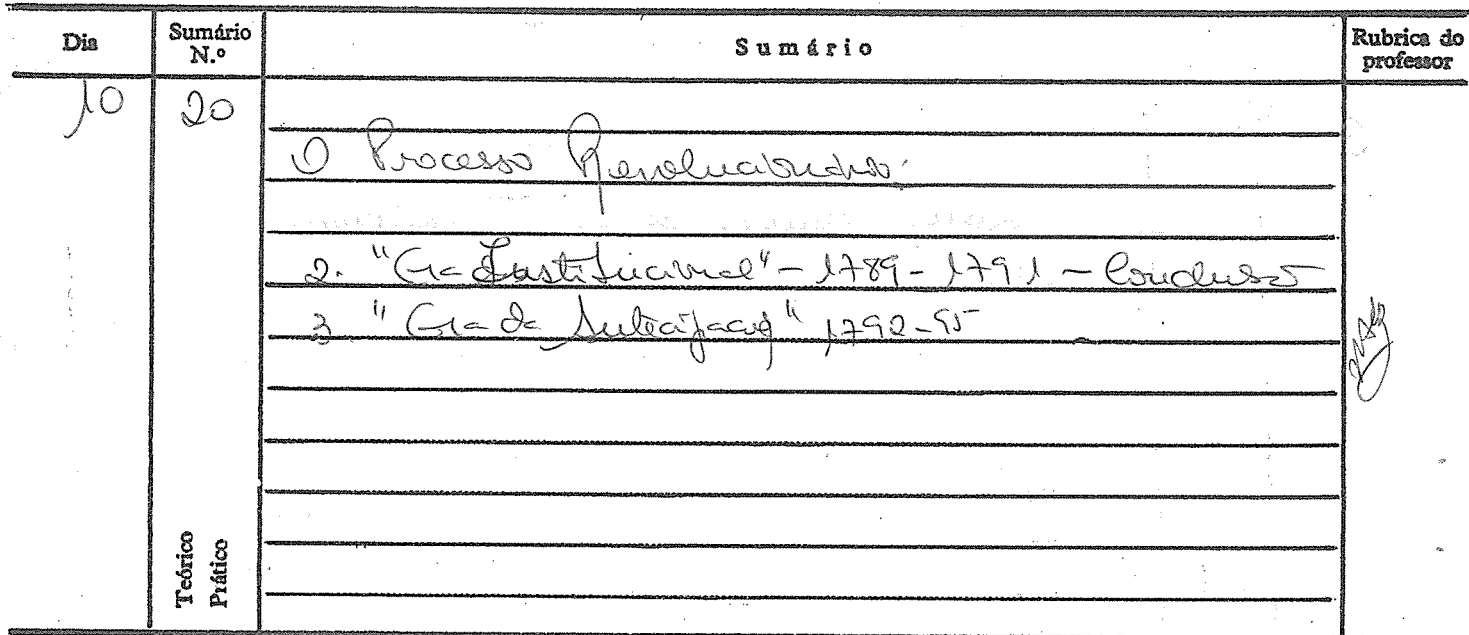 Dia Sumário N.º Sumário Rubrica do professor
10 20
O Processo Revolucionário.
2. "Era Institucional" - 1789-1791 - Conclusão
3 "Era da Antecipação" 1792-95
Teórico
Prático